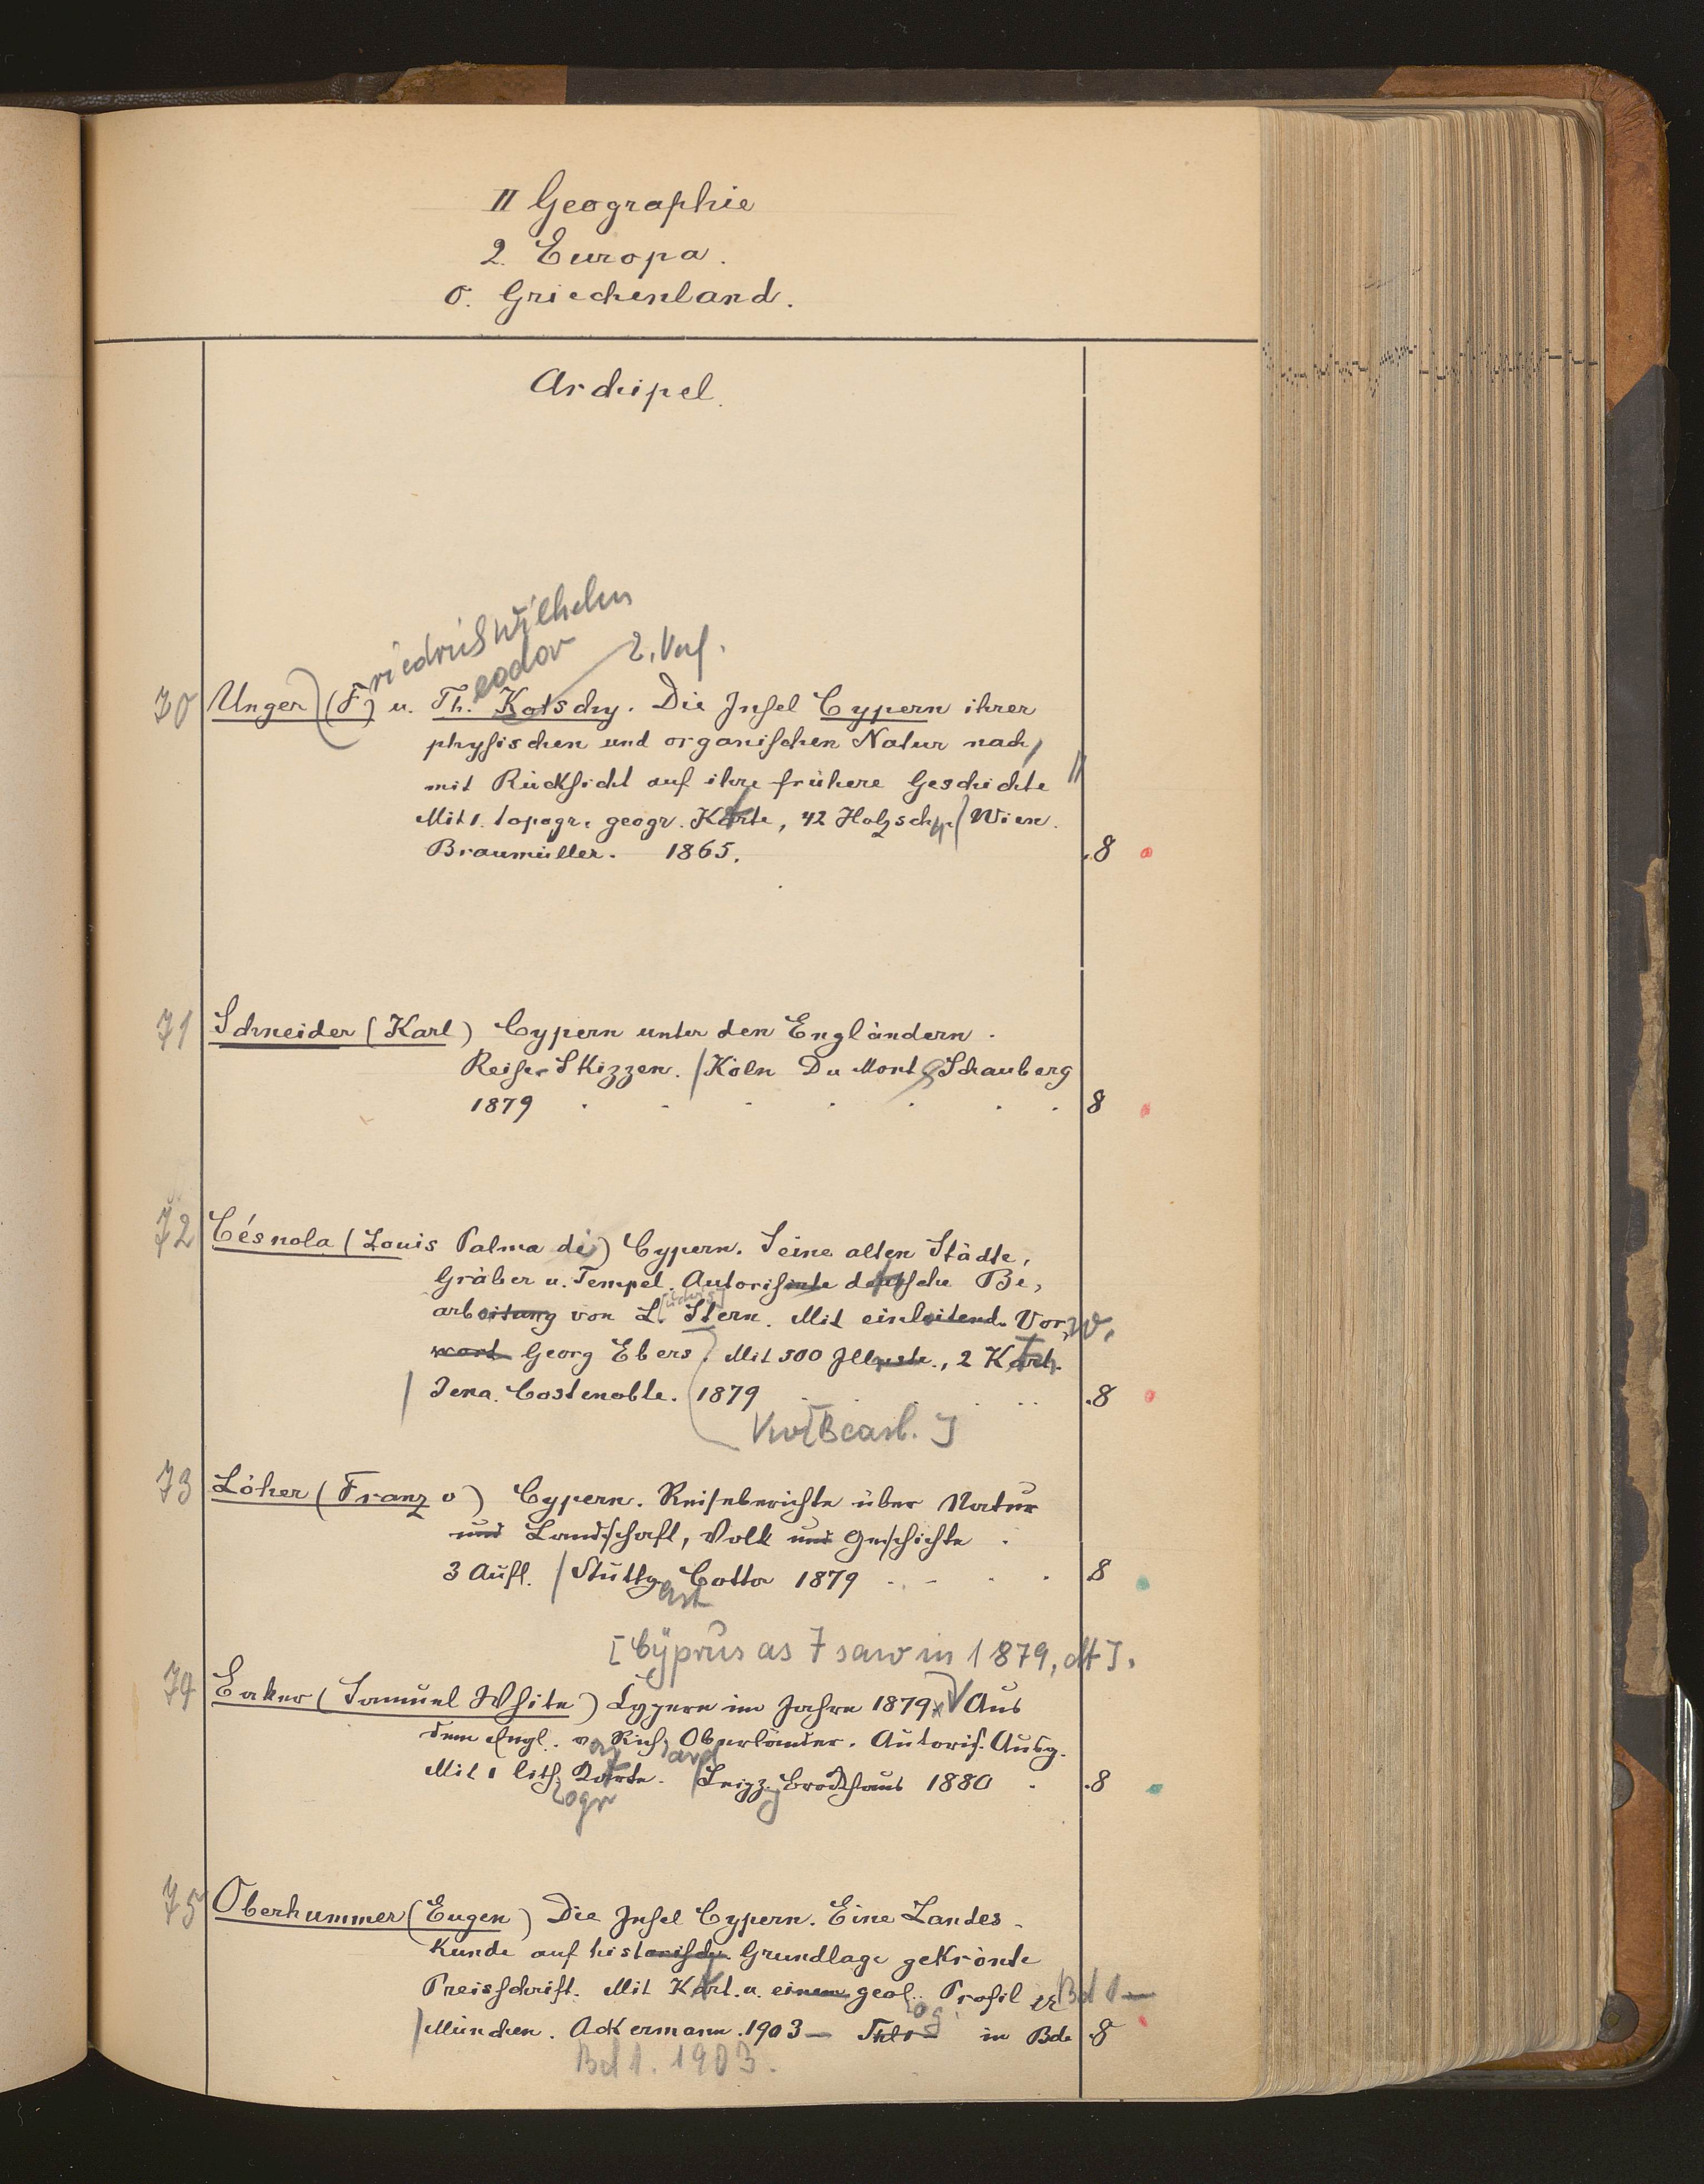 II Geographie
2. Europa.
o. Griechenland.
Archipel.
riedrich Wilhelm
eodor 2. Verf.
70 Unger (F) u. Th. Kotschy. Die Insel Cypern ihrer
physischen und organischen Natur nach,
mit Rücksicht auf ihre frühere Geschichte
Mit 1. topogr. geogr. Karte, 42 Holzschn. Wien.
Braumüller. 1865. 8
71 Schneider (Karl) Cypern unter den Engländern.
Reise-Skizzen. Köln Du Mont Schauberg
1879 8
72 Césnola (Louis Palma di) Cypern. Seine alten Städte,
Gräber u. Tempel. Autorisierte deutsche Be-
udwig
arbeitung von L. Stern. Mit einleitend. Vor- w.
wort Georg Ebers. Mit 500 Illustr., 2 Kart.
Jena. Costenoble. 1879 8
[Bearb.]
73 Löher (Franz v) Cypern. Reiseberichte über Natur
und Landschaft, Volk und Geschichte.
3 Aufl. Stuttg. Cotta 1879 8
art
[Cyprus as I saw in 1879, dt].
74 Baker (Samuel White) Cypern im Jahre 1879. Aus
dem Engl. v. Rich. Oberländer. Autoris. Ausg.
ard
Mit 1 lith. Karte. Leipz. Brockhaus 1880 8
ogr
75 Oberhummer (Eugen) Die Insel Cypern. Eine Landes-
kunde auf historischer Grundlage gekrönte
Preisschrift. Mit Kart. u. einem geol. Profil Bd 1-
og.
München. Ackermann. 1903 - in Bde 8
Bd 1. 1903.